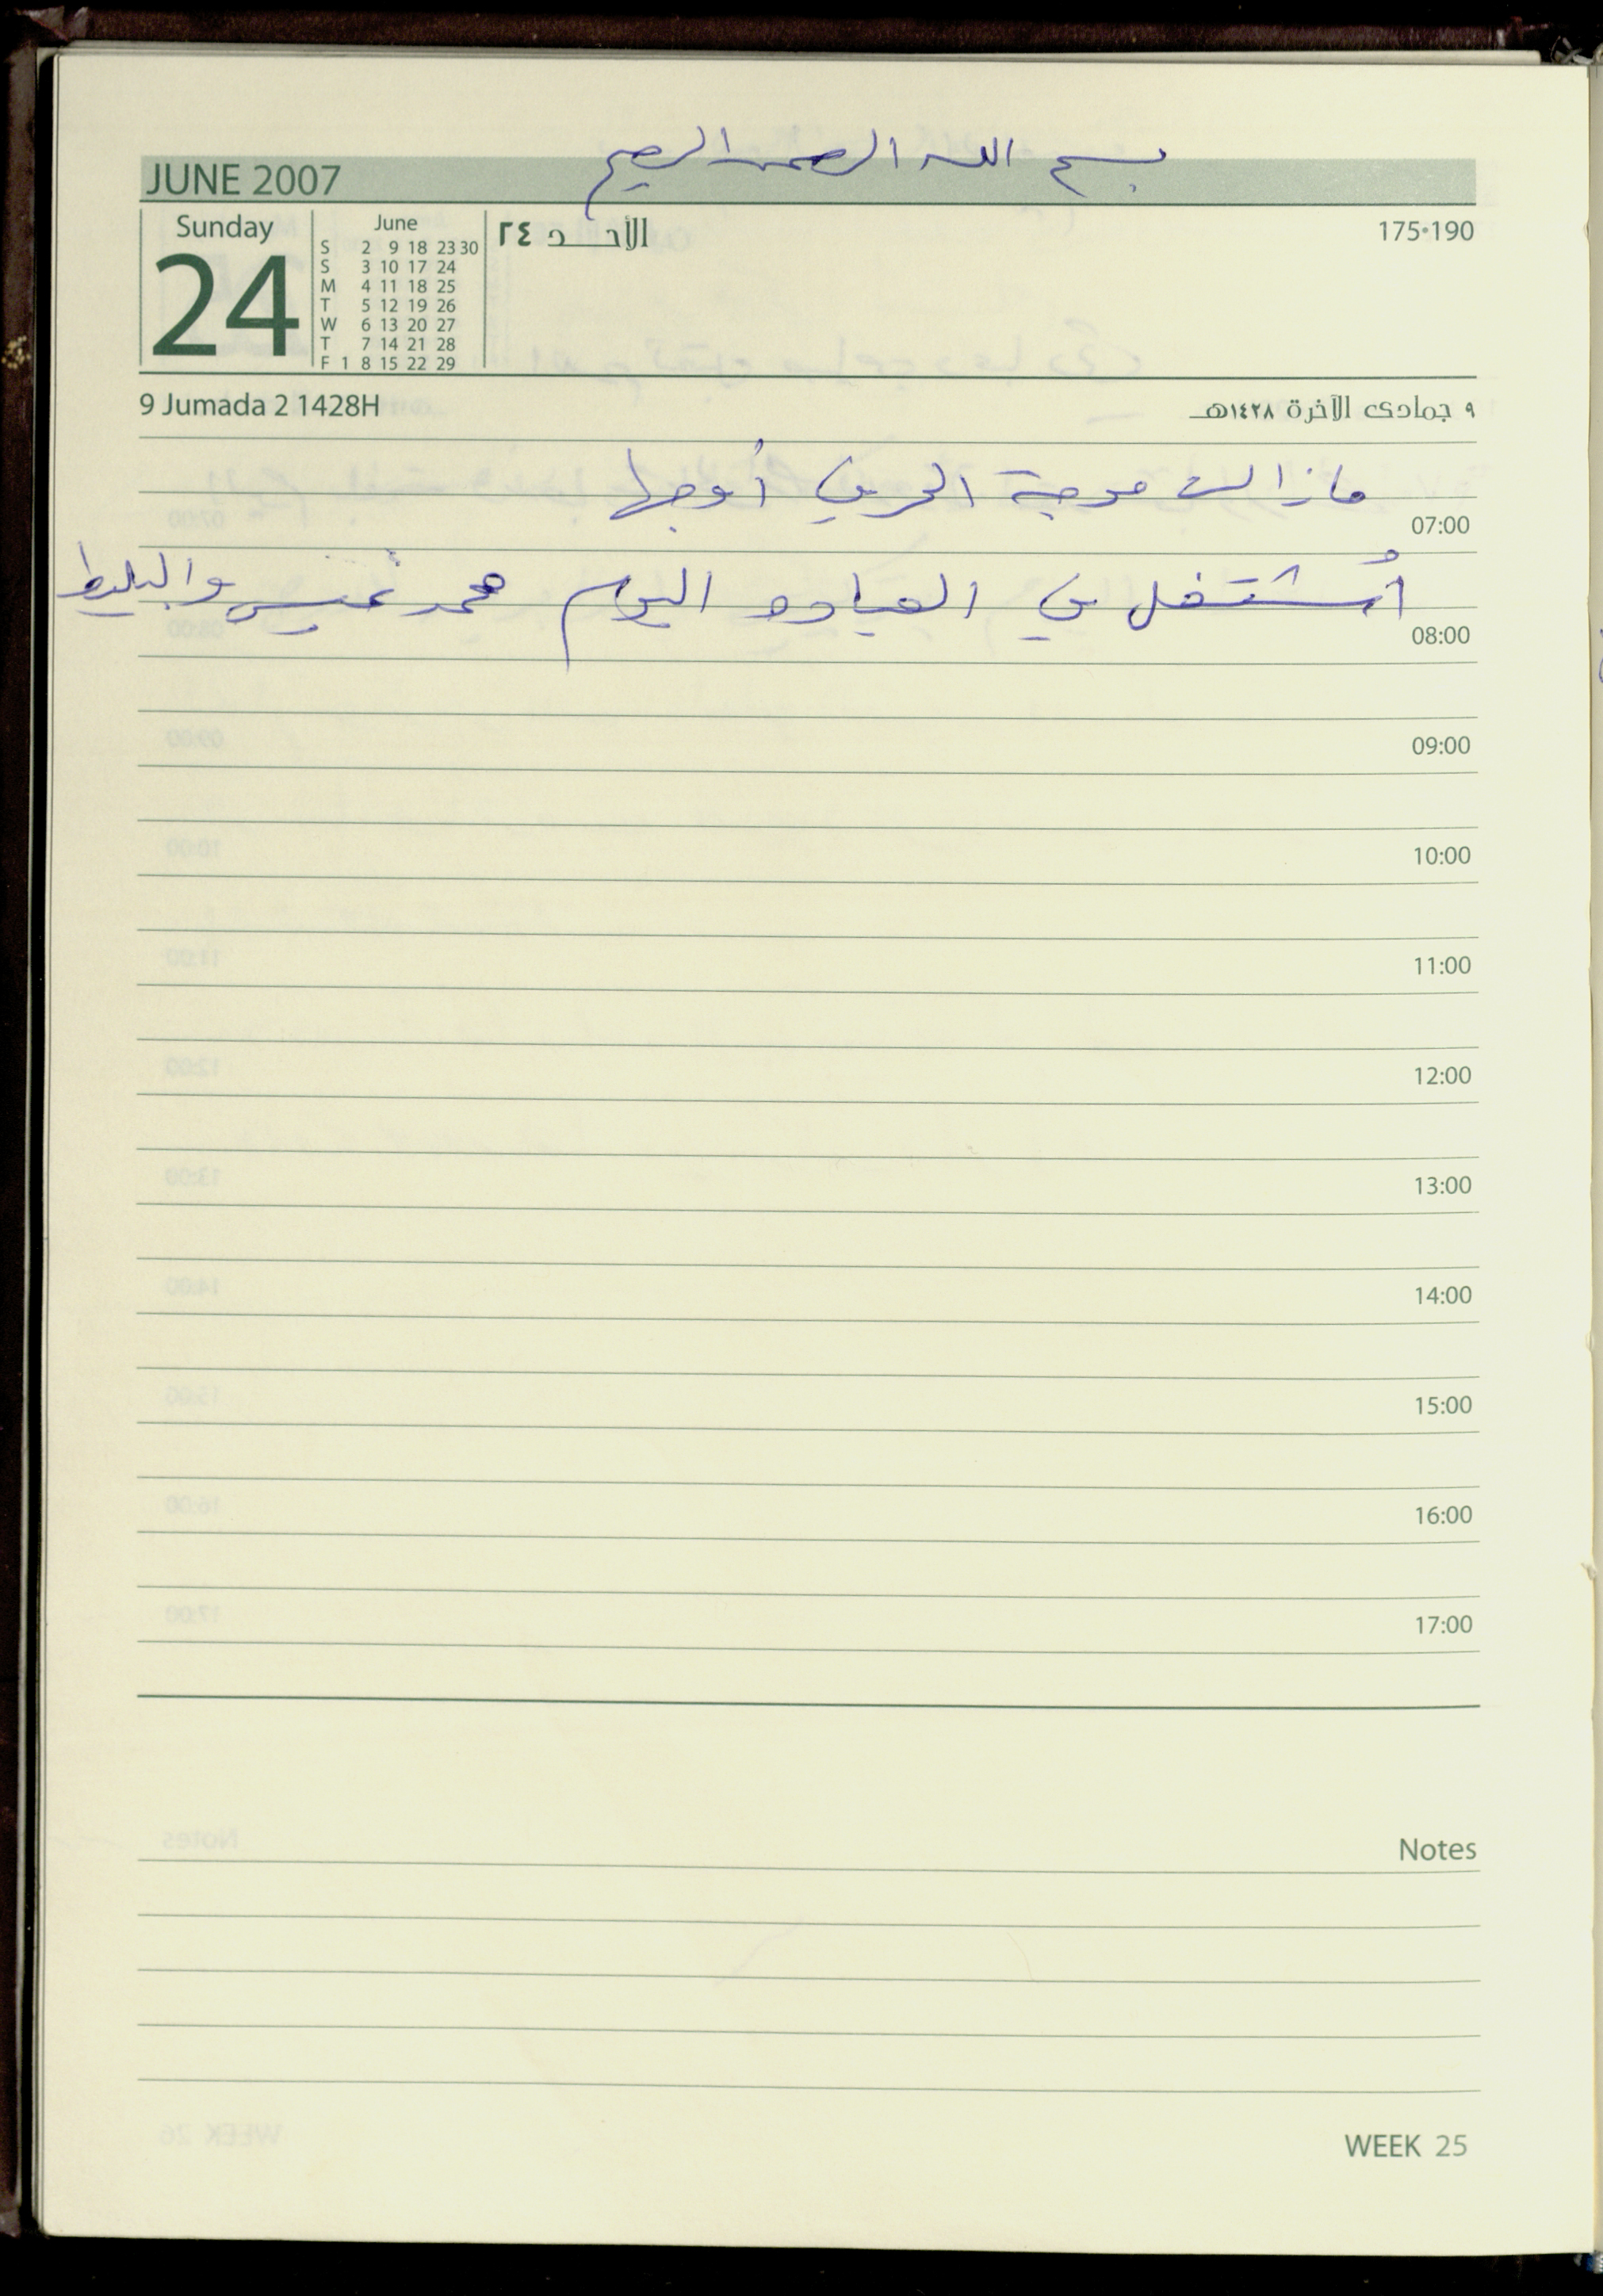 بسم الله الرحمن الرحيم
JUNE 2007
Sunday
24
June
S 2 9 18 23 30
S 3 10 17 24
M 4 11 18 25
T 5 12 19 26
W 6 13 20 27
T 7 14 21 28
F 1 8 15 22 29
الأحد ٢٤
175•190
9 Jumada 2 1428H
٩ جمادى الآخرة ١٤٢٨هـ
مازالت موجة الحر في أوجها
07:00
أشتغل في العياده اليوم محمد خميس والبليط
08:00
09:00
10:00
11:00
12:00
13:00
14:00
15:00
16:00
17:00
Notes
WEEK 25